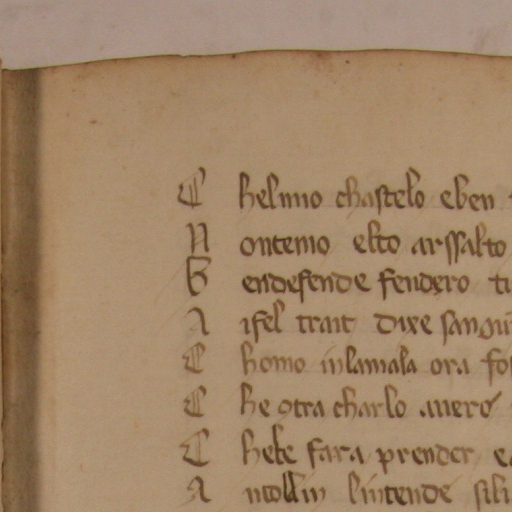 C helmio chastelo eben
N ontemo elto arssalto
B endefende fendero
A isel trait dixe sangui
C homo inlamala ora fos
C he otra charlo auero
C hele fara prender
A ntollin lintende sili